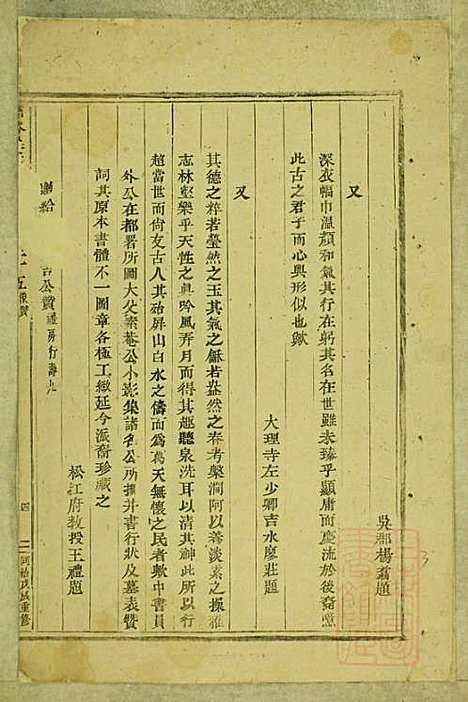 吳郡楊翥題
又
深衣幅巾溫顏和氣其行在躬其名在世雖未臻乎顯庸而慶流於後裔噫
此古之君子而心與形似也歟
大理寺左少卿吉水廖莊題
又
其德之粹若瑩然之玉其氣之龢若盎然之春考槃澗阿以養淡素之操雅
志林壑樂乎天性之真吟風弄月而得其趣聽泉洗耳以清其神此所以行
超當世而尚友古人其殆屏山白水之儔而為葛天無懷之民者歟中書員
外公在都署所圖大父素菴公小影集諸名公所撰并書行狀及墓表贊
詞其原本書體不一圖章各極工緻延今派裔珍藏之
松江府教授王禮題
公贊禮房行壽九
四
同治戊辰重修